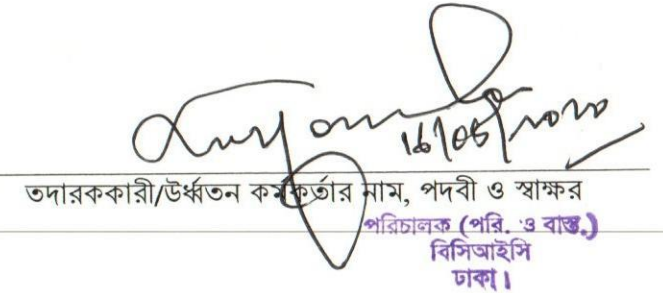 তদারককারী/উর্ধ্বতন কর্মকর্তার নাম, পদবী ও স্বাক্ষর
পরিচালক (পরি. ও বাস্ত.)
বিসিআইসি
ঢাকা।